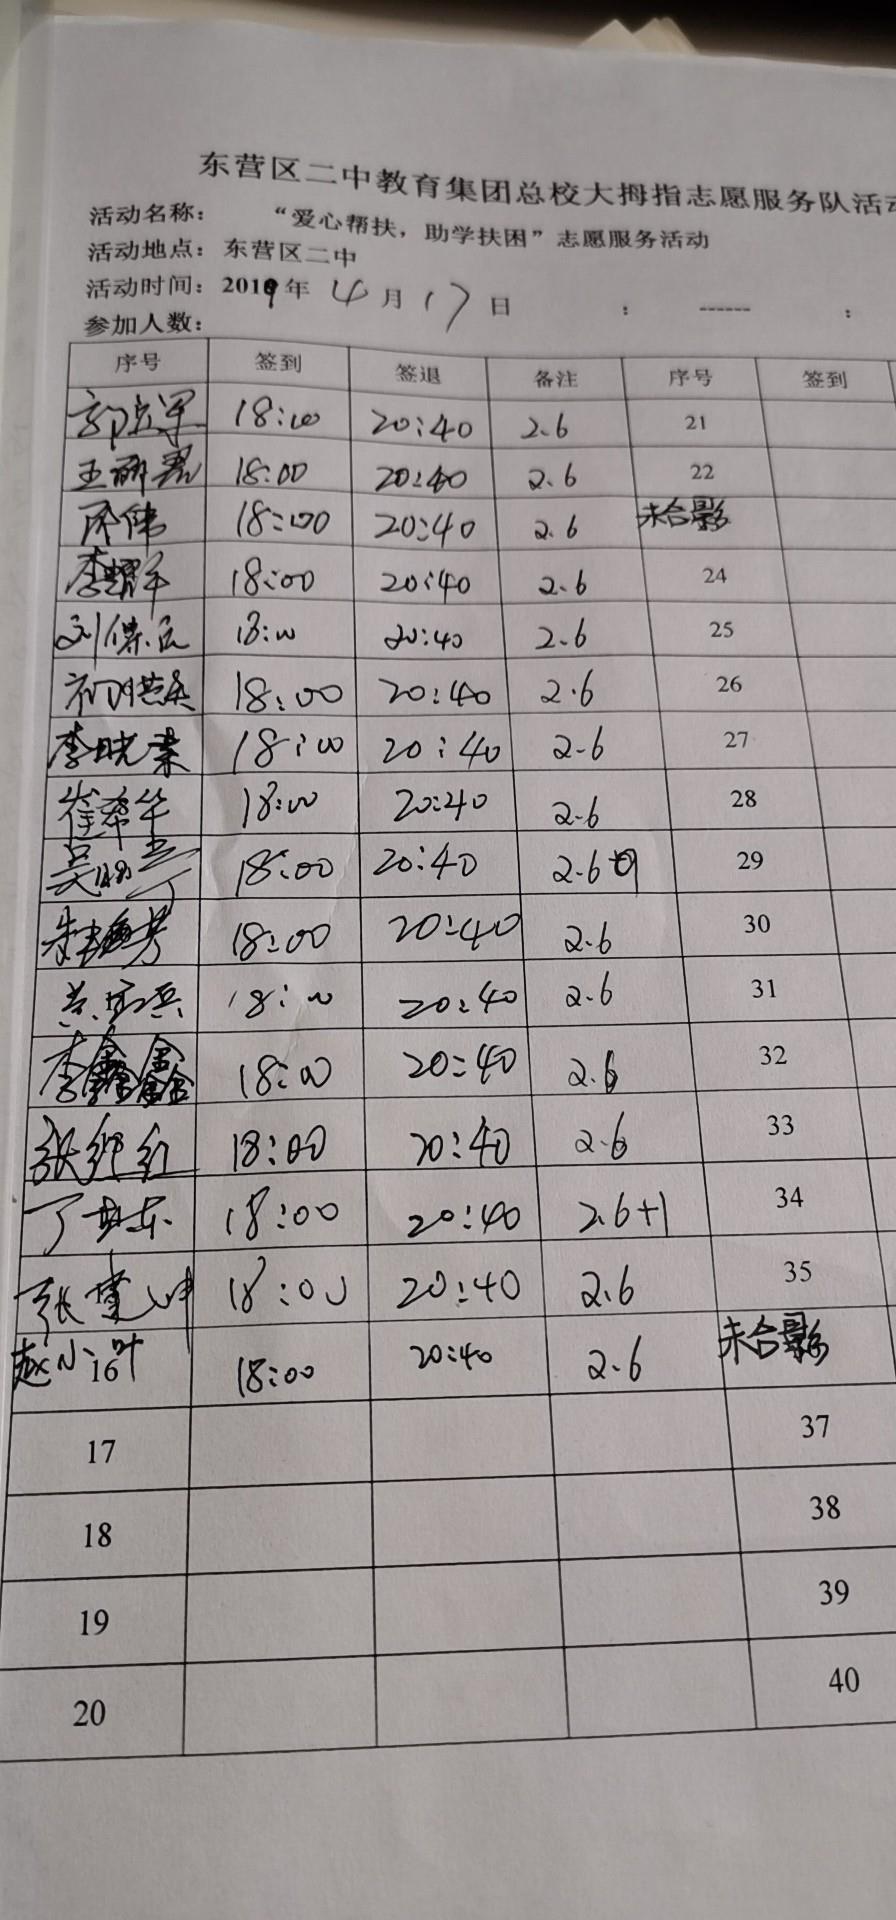 东营区二中教育集团总校大拇指志愿服务队活动
活动名称： “爱心帮扶，助学扶困”志愿服务活动
活动地点：东营区二中
活动时间：2019年 4 月 17 日 : ------ :
参加人数：
序号 签到 签退 备注 序号 签到
18:00 20:40 2.6 21
王丽君 18:00 20:40 2.6 22
18:00 20:40 2.6 未合影
李耀军 18:00 20:40 2.6 24
刘 18:00 20:40 2.6 25
18:00 20:40 2.6 26
李晓 18:00 20:40 2.6 27
崔希华 18:00 20:40 2.6 28
吴 18:00 20:40 2.6 29
芳 18:00 20:40 2.6 30
18:00 20:40 2.6 31
李鑫鑫 18:00 20:40 2.6 32
张红红 18:00 20:40 2.6 33
丁 18:00 20:40 2.6+1 34
张 18:00 20:40 2.6 35
赵小叶 16 18:00 20:40 2.6 未合影
17 37
18 38
19 39
20 40